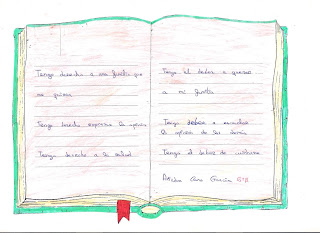 Tengo derecho a una familia que
me quiera
Tengo derecho expresar la opinión
Tengo derecho a la salud
Tengo el deber a querer
a mi familia
Tengo deber a escuchar
la opinión de los demás
Tengo el deber de
García